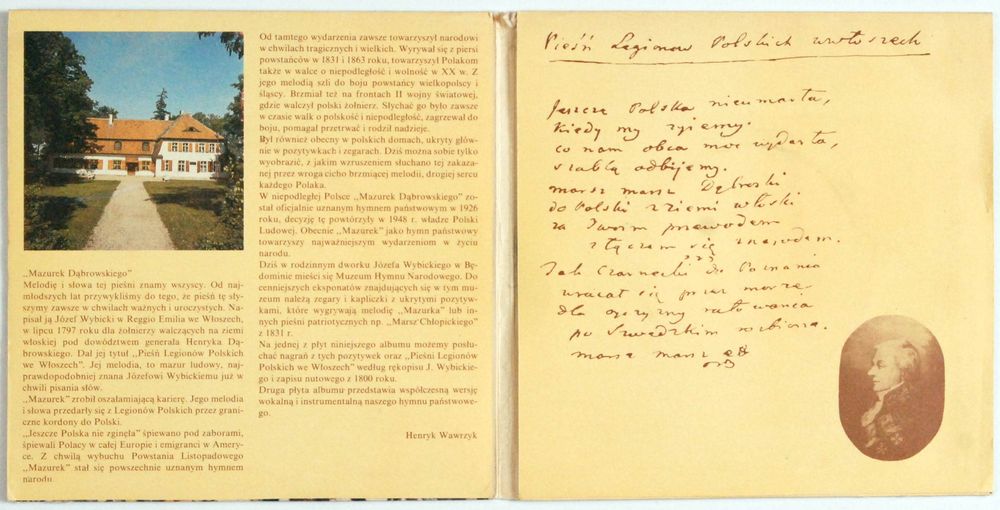 „Mazurek Dąbrowskiego”
Melodię i słowa tej pieśni znamy wszyscy. Od naj-
młodszych lat przywykliśmy do tego, że pieśń tę sły-
szymy zawsze w chwilach ważnych i uroczystych. Na-
pisał ją Józef Wybicki w Reggio Emilia we Włoszech,
w lipcu 1797 roku dla żołnierzy walczących na ziemi
włoskiej pod dowództwem generała Henryka Dą-
browskiego. Dał jej tytuł „Pieśń Legionów Polskich
we Włoszech”. Jej melodia, to mazur ludowy, naj-
prawdopodobniej znana Józefowi Wybickiemu już w
chwili pisania słów.
„Mazurek” zrobił oszałamiającą karierę. Jego melodia
i słowa przedarły się z Legionów Polskich przez grani-
czne kordony do Polski.
„Jeszcze Polska nie zginęła” śpiewano pod zaborami,
śpiewali Polacy w całej Europie i emigranci w Amery-
ce. Z chwilą wybuchu Powstania Listopadowego
„Mazurek” stał się powszechnie uznanym hymnem
narodu.
Od tamtego wydarzenia zawsze towarzyszył narodowi
w chwilach tragicznych i wielkich. Wyrywał się z piersi
powstańców w 1831 i 1863 roku, towarzyszył Polakom
także w walce o niepodległość i wolność w XX w. Z
jego melodią szli do boju powstańcy wielkopolscy i
śląscy. Brzmiał też na frontach II wojny światowej,
gdzie walczył polski żołnierz. Słychać go było zawsze
w czasie walk o polskość i niepodległość, zagrzewał do
boju, pomagał przetrwać i rodził nadzieje.
Był również obecny w polskich domach, ukryty głów-
nie w pozytywkach i zegarach. Dziś można sobie tylko
wyobrazić, z jakim wzruszeniem słuchano tej zakaza-
nej przez wroga cicho brzmiącej melodii, drogiej sercu
każdego Polaka.
W niepodległej Polsce „Mazurek Dąbrowskiego” zo-
stał oficjalnie uznanym hymnem państwowym w 1926
roku, decyzję tę powtórzyły w 1948 r. władze Polski
Ludowej. Obecnie „Mazurek” jako hymn państwowy
towarzyszy najważniejszym wydarzeniom w życiu
narodu.
Dziś w rodzinnym dworku Józefa Wybickiego w Bę-
dominie mieści się Muzeum Hymnu Narodowego. Do
cenniejszych eksponatów znajdujących się w tym mu-
zeum należą zegary i kapliczki z ukrytymi pozytyw-
kami, które wygrywają melodię „Mazurka” lub in-
nych pieśni patriotycznych np. „Marsz Chłopickiego”
z 1831 r.
Na jednej z płyt niniejszego albumu możemy posłu-
chać nagrań z tych pozytywek oraz „Pieśni Legionów
Polskich we Włoszech” według rękopisu J. Wybickie-
go i zapisu nutowego z 1800 roku.
Druga płyta albumu przedstawia współczesną wersję
wokalną i instrumentalną naszego hymnu państwowe-
go.
Henryk Wawrzyk
Pieśń Legionow Polskich wewłoszech
Jeszcze Polska nieumarła,
kiedy my żyiemy.
co nam obca moc wydarła,
szablą odbijemy.
marsz marsz Dąbroski
do Polski z ziemi włoski
za Twoim przewodem
złączem się znarodem.
Jak Czarnecki do Poznania
wracał się przez morze
dla oyczyzny ratowania
po Szwedzkim rozbiorze.
marsz marsz